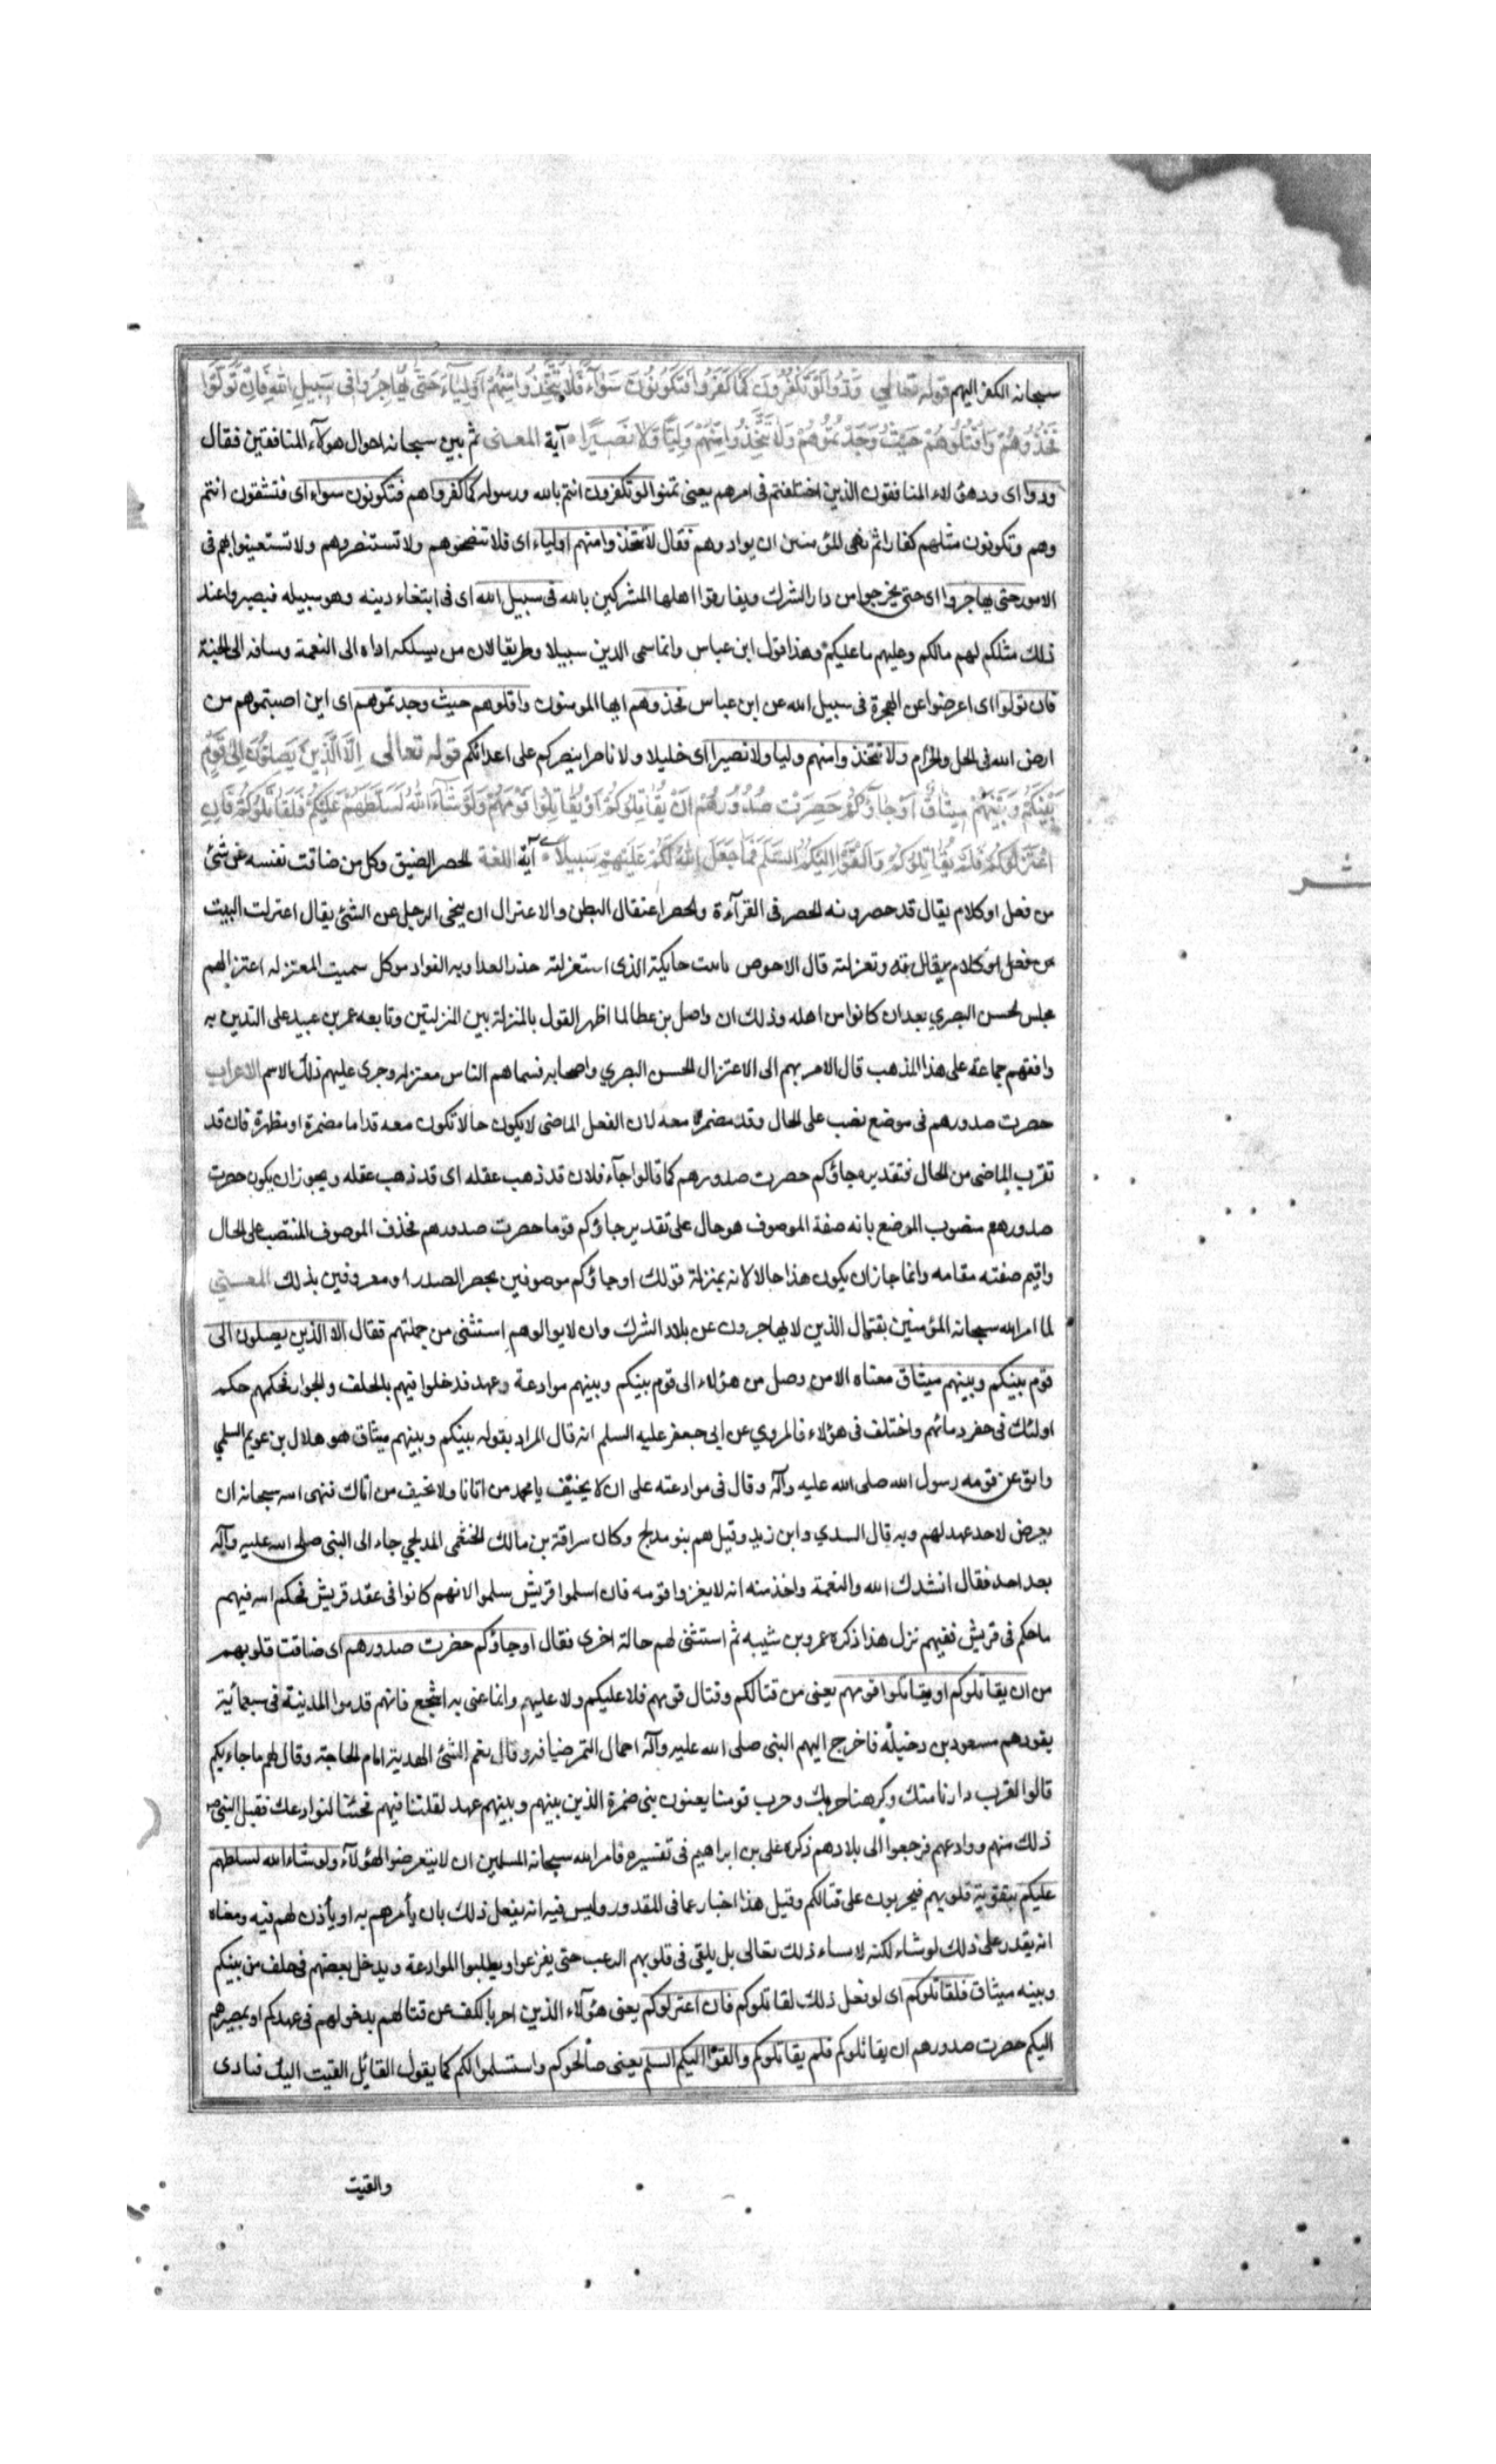 سبحانه الكفر اليهم قوله تعالى وَدُّوا لَوْ تَكْفُرُونَ كَمَا كَفَرُوا فَتَكُونُونَ سَوَآءً فَلَا تَتَّخِذُوا مِنْهُمْ اَوْلِيَآءَ حَتّٰى يُهَاجِرُوا فى سَبِيلِ اللهِ فَاِنْ تَوَلَّوْا
فَخُذُوهُمْ وَاقْتُلُوهُمْ حَيْثُ وَجَدْتُمُوهُمْ وَلَا تَتَّخِذُوا مِنْهُمْ وَلِيًّا وَلَا نَصِيرًا آية المعنى ثم بين سبحانه احوال هولآء المنافقين فقال
ودوا اى ود هؤلاء المنافقون الذين اختلفتم فى امرهم يعنى تمنوا لو تكفرون انتم بالله ورسوله كما كفروا هم فتكونون سواء اى فتشقون انتم
وهم وتكونون مثلهم كفارا ثم نهى المؤمنين ان يوادوهم فقال لا تتخذوا منهم اولياء اى فلا تنصحوهم ولا تستنصروهم ولا تستعينوا بهم فى
الامور حتى يهاجروا اى حتى يخرجوا من دار الشرك ويفارقوا اهلها المشركين بالله فى سبيل الله اى فى ابتغاء دينه وهو سبيله فيصيروا عند
ذلك مثلكم لهم مالكم وعليهم ما عليكم وهذا قول ابن عباس وانما سمى الدين سبيلا وطريقا لان من يسلكه اداه الى النعمة وساقه الى الجنة
فان تولوا اى اعرضوا عن الهجرة فى سبيل الله عن ابن عباس فخذوهم ايها المومنون واقتلوهم حيث وجدتموهم اى اين اصبتموهم من
ارض الله فى الحل والحرام ولا تتخذوا منهم وليا ولا نصيرا اى خليلا ولا ناصرا ينصركم على اعدائكم قوله تعالى اِلَّا الَّذِينَ يَصِلُونَ اِلٰى قَوْمٍ
بَيْنَكُمْ وَبَيْنَهُمْ مِيثَاقٌ اَوْ جَآؤُكُمْ حَصِرَتْ صُدُورُهُمْ اَنْ يُقَاتِلُوكُمْ اَوْ يُقَاتِلُوا قَوْمَهُمْ وَلَوْ شَآءَ اللهُ لَسَلَّطَهُمْ عَلَيْكُمْ فَلَقَاتَلُوكُمْ فَاِنِ
اعْتَزَلُوكُمْ فَلَمْ يُقَاتِلُوكُمْ وَاَلْقَوْا اِلَيْكُمُ السَّلَمَ فَمَا جَعَلَ اللهُ لَكُمْ عَلَيْهِمْ سَبِيلًا آية اللغة الحصر الضيق وكل من ضاقت نفسه عن شئ
من فعل او كلام يقال قد حصر ومنه الحصر فى القرآءة والحصر اعتقال البطن والاعتزال ان يتنحى الرجل عن الشئ يقال اعتزلت البيت
من فعل او كلام يقال وتعزلته قال الاحوص الذى استعزلته حذر العدا وبه الفواد موكل سميت المعتزله اعتزالهم
مجلس الحسن البصري بعد ان كانوا من اهله وذلك ان واصل بن عطا لما اظهر القول بالمنزلة بين المنزلتين وتابعه عمر بن عبيد على التدين به
وافقهم جماعة على هذا المذهب قال الامر بهم الى الاعتزال الحسن البصري واصحابه فسماهم الناس معتزله وجرى عليهم ذلك الاسم الاعراب
حصرت صدورهم فى موضع نصب على الحال وقد مضمرة معه لان الفعل الماضى لا يكون حالا تكون معه قد اما مضمرة او مظهرة فان قد
تقرب الماضى من الحال فتقديره جاؤكم حصرت صدورهم كما قالوا جآء فلان قد ذهب عقله اى قد ذهب عقله ويجوز ان يكون حصرت
صدورهم منصوب الموضع بانه صفة الموصوف هو حال على تقدير جاؤكم قوما حصرت صدورهم فحذف الموصوف المنتصب على الحال
واقيم صفته مقامه وانما جاز ان يكون هذا حالا لانه بمنزلة قولك او جاؤكم موصوفين بحصر الصدر او معروفين بذلك المعنى
لما امر الله سبحانه المؤمنين بقتال الذين لا يهاجرون عن بلاد الشرك وان لا يوالوهم استثنى من جملتهم فقال الا الذين يصلون الى
قوم بينكم وبينهم ميثاق معناه الا من وصل من هؤلاء الى قوم بينكم وبينهم موادعة وعهد فدخلوا فيهم بالحلف والجوار فحكمهم حكم
اولئك فى حقن دمائهم واختلف فى هؤلاء فالمروي عن ابى جعفر عليه السلم انه قال المراد بقوله بينكم وبينهم ميثاق هو هلال بن عويم السلمي
واثق عن قومه رسول الله صلى الله عليه وآله وقال فى موادعته على ان لا يحيف يا محمد من اتانا ولا نحيف من اتاك فنهى الله سبحانه ان
يعرض لاحد عهد لهم وبه قال السدي وابن زيد وقيل هم بنو مدلج وكان سراقة بن مالك الخثعمى المدلجي جاء الى النبى صلى الله عليه وآله
بعد احد فقال انشدك الله والنعمة واخذ منه انه لا يغزوا قومه فان اسلموا قريش سلموا لانهم كانوا فى عقد قريش فحكم الله فيهم
ما حكم فى قريش ففيهم نزل هذا ذكره عمرو بن شيبه ثم استثنى لهم حالة اخرى فقال او جاؤكم حضرت صدورهم اى ضاقت قلوبهم
من ان يقاتلوكم او يقاتلوا قومهم يعنى من قتالكم وقتال قومهم فلا عليكم ولا عليهم وانما عنى به اشجع فانهم قدموا المدينة فى سبعمائية
يقودهم مسعود بن دخيلة فاخرج اليهم النبى صلى الله عليه وآله احمال التمر ضيافه وقال نعم الشئ الهدية امام الحاجة وقال لهم ما جاء بكم
قالوا لقرب دارنا منك وكرهنا حربك وحرب قومنا يعنون بنى ضمرة الذين بينهم وبينهم عهد لقلتنا فيهم فجئنا لنوادعك فقبل النبى ص
ذلك منهم ووادعهم فرجعوا الى بلادهم ذكره على بن ابراهيم فى تفسيره فامر الله سبحانه المسلمين ان لا يتعرضوا لهؤلآء ولو شاء الله لسلطهم
عليكم بتقوية قلوبهم فيجريون على قتالكم وقيل هذا اخبار عما فى المقدور وليس فيه انه يفعل ذلك بان يأمرهم به او يأذن لهم فيه ومعناه
انه يقدر على ذلك لو شاء لكنه لا يشاء ذلك تعالى بل يلقى فى قلوبهم الرعب حتى يفزعوا ويطلبوا الموادعة ويدخل بعضهم فى حلف من بينكم
وبينه ميثاق فلقاتلوكم اى لو فعل ذلك لقاتلوكم فان اعتزلوكم يعنى هؤلآء الذين امر بالكف عن قتالهم بدخولهم فى عهدكم او بمصيرهم
اليكم حصرت صدورهم ان يقاتلوكم فلم يقاتلوكم والقوا اليكم السلم يعنى صالحوكم واستسلموا لكم كما يقول القائل القيت اليك قيادى
والقيت